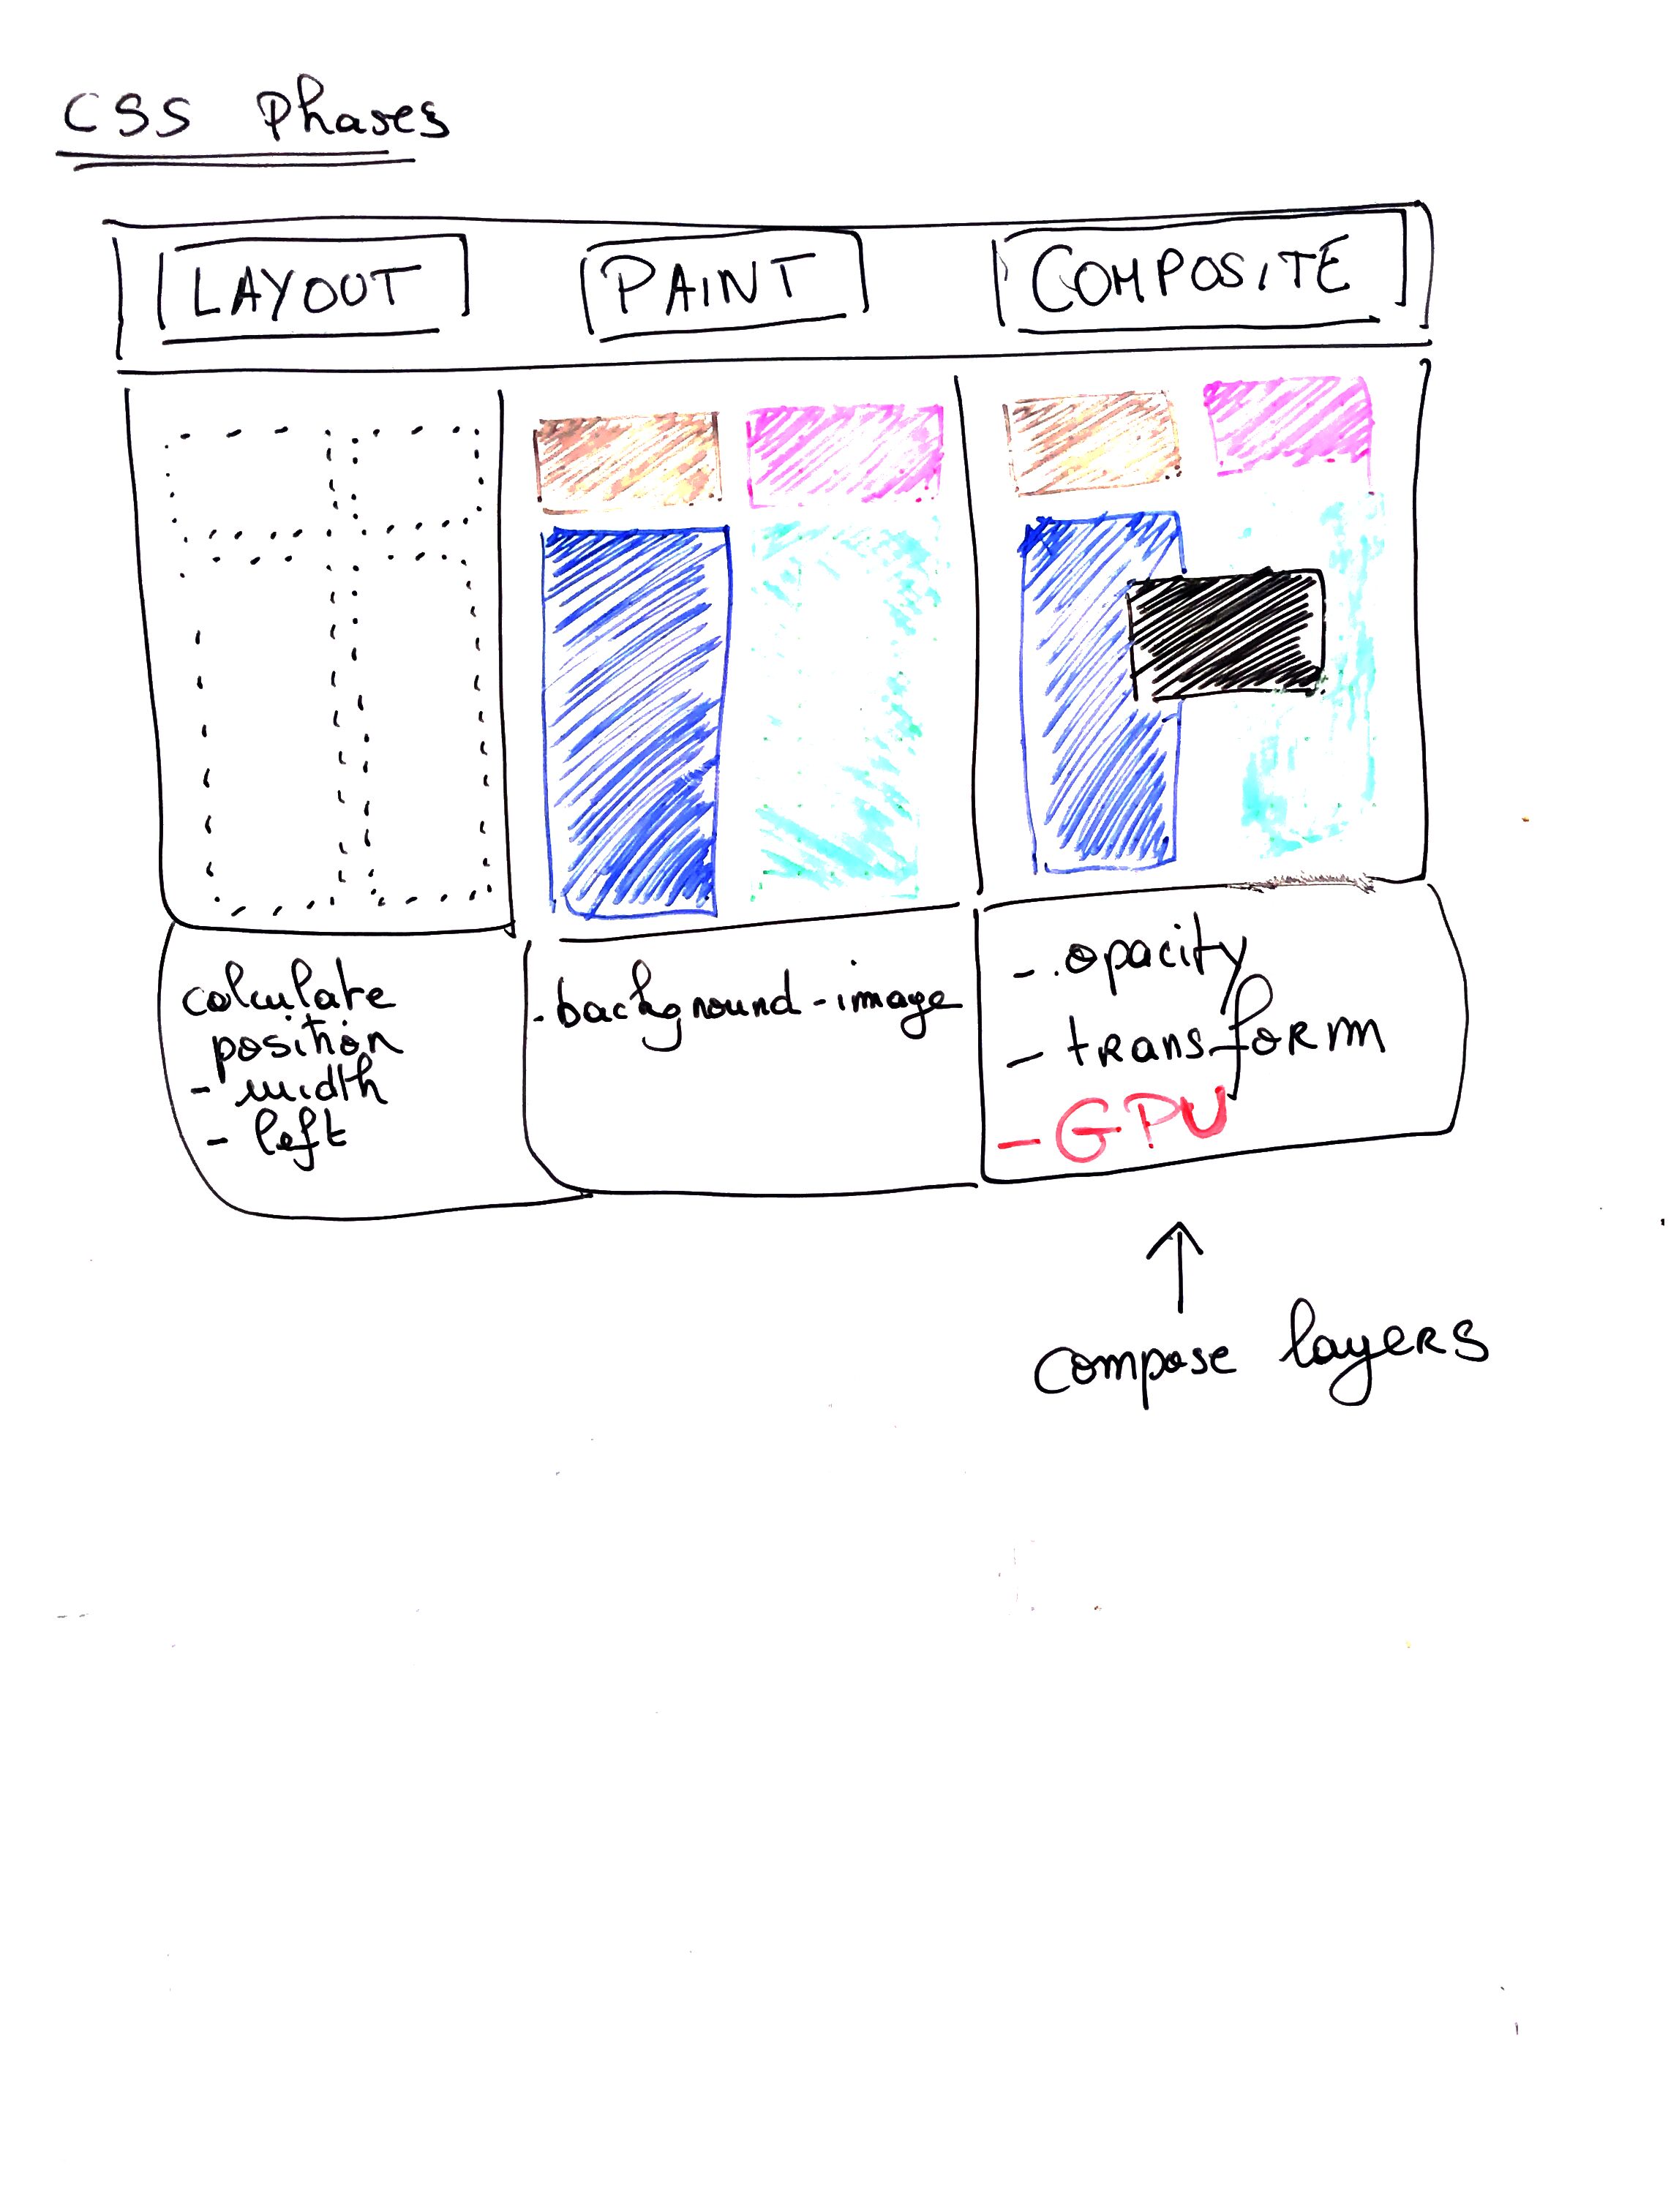 CSS Phases
LAYOUT
PAINT
COMPOSITE
calculate
position
- width
- left
- background-image
- opacity
- transform
- GPU
compose layers